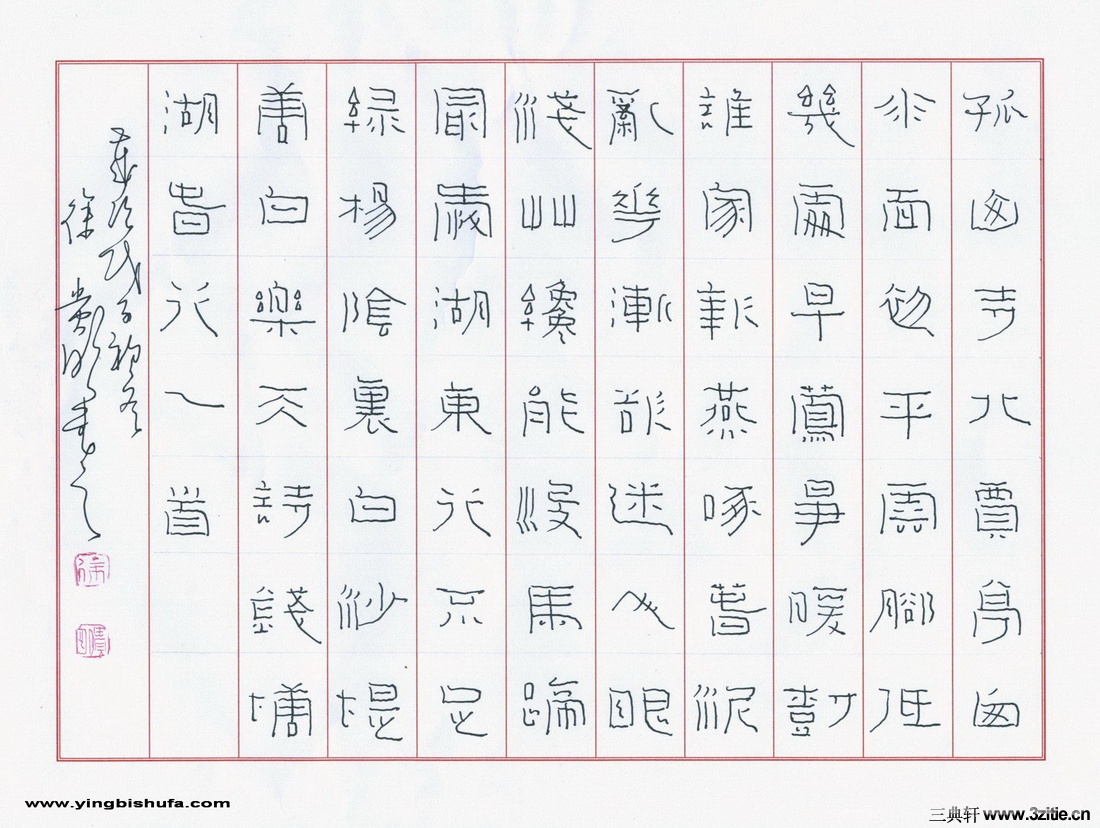 孤山寺北賈亭西
水面初平雲腳低
幾處早鶯爭暖樹
誰家新燕啄春泥
亂花漸欲迷人眼
淺草纔能沒馬蹄
最愛湖東行不足
綠楊陰裏白沙堤
唐白樂天詩錢塘
湖春行一首
歲次戊子初冬
徐書之
www.yingbishufa.com
三典轩 www.3zitie.cn